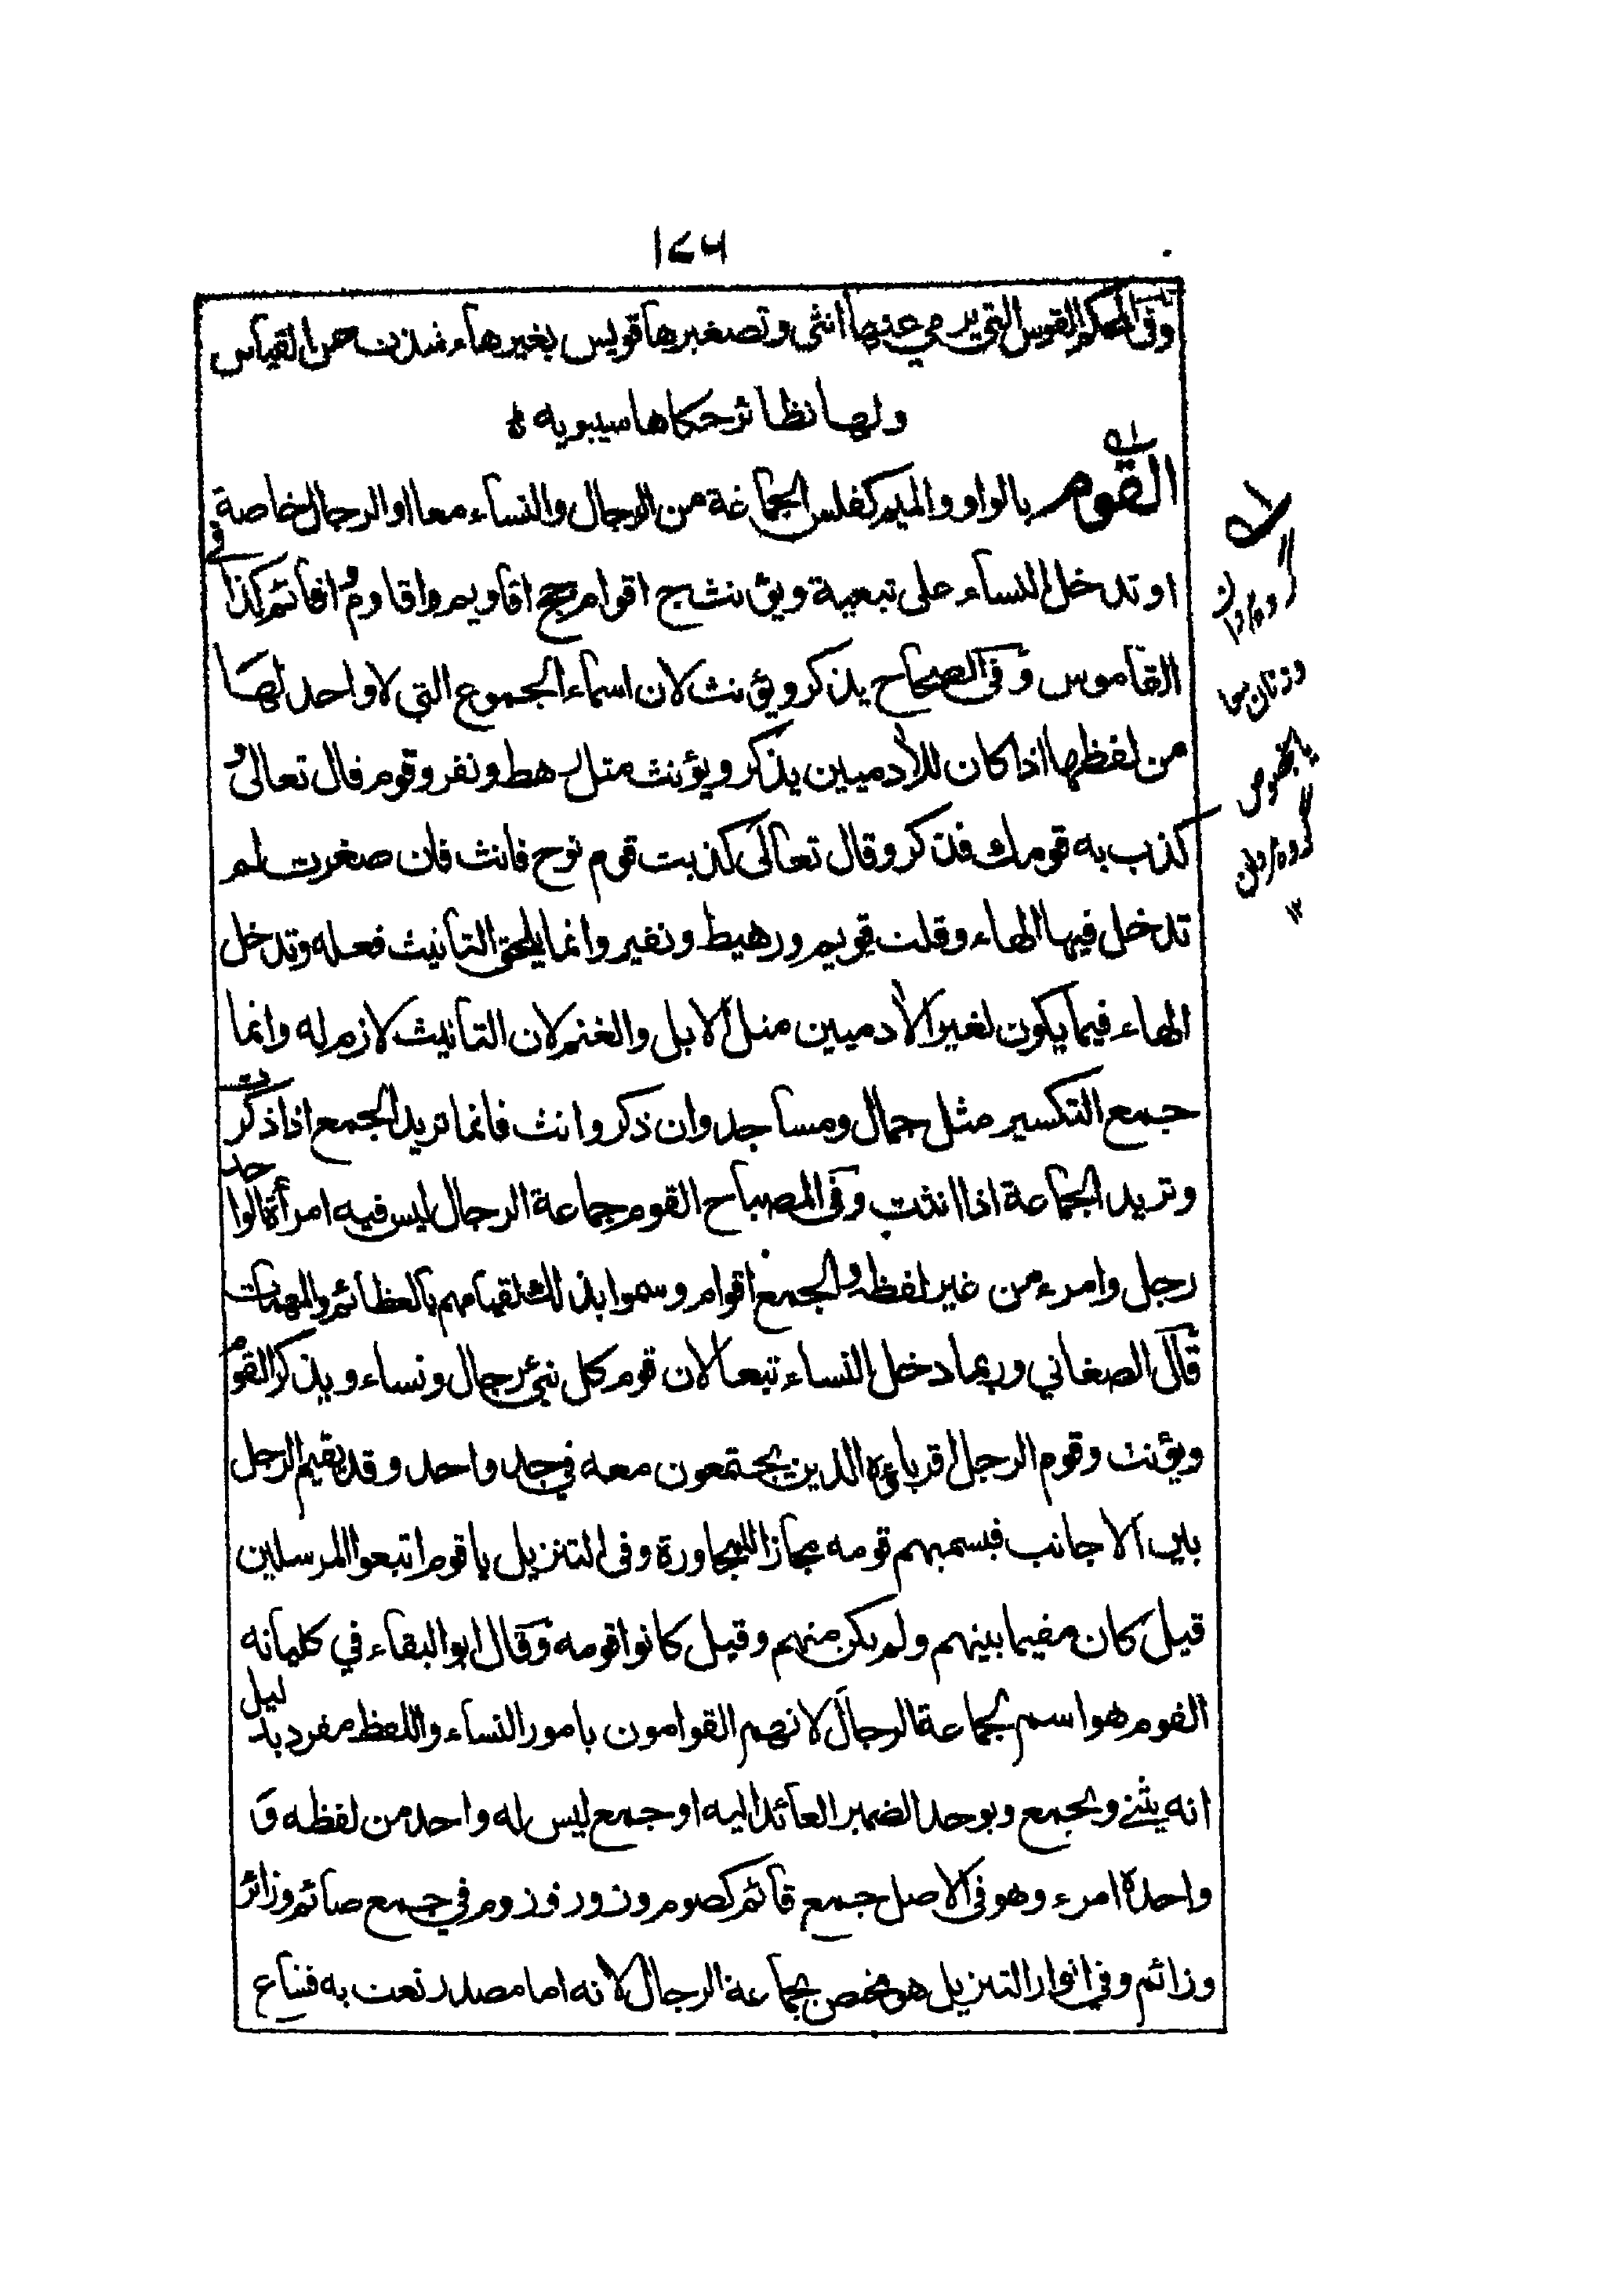 ١٧٦
وفي المحكم القوس التي يرمي عنها انثى وتصغيرها قويس بغير هاء شذت عن القياس
ولها نظائر حكاها سيبويه
القوم بالواو والميم كفلس الجماعة من الرجال والنساء معا او الرجال خاصة
او تدخل النساء على تبعية ويؤنث ج اقوام جج اقاويم واقاوم اقائم كذا في
القاموس وفي الصحاح يذكر ويؤنث لان اسماء الجموع التي لا واحد لها
من لفظها اذا كان للآدميين يذكر ويؤنث مثل رهط ونفر وقوم قال تعالى و
كذب به قومك فذكر وقال تعالى كذبت قوم نوح فانث فان صغرت لم
تدخل فيها الهاء وقلت قويم ورهيط ونفير وانما يلحق التانيث فعله وتدخل
الهاء فيما يكون لغير الآدميين مثل الابل والغنم لان التانيث لازم له وانما
جمع التكسير مثل جمال ومساجد وان ذكر وانث فانما تريد الجمع اذا ذكرت
وتريد الجماعة اذا انثت وفي المصباح القوم جماعة الرجال ليس فيه امرأة الواحد
رجل وامرء من غير لفظه والجمع اقوام وسموا بذلك لقيامهم بالعظائم والمهمات
قال الصغاني وربما دخل النساء تبعا لان قوم كل نبي رجال ونساء ويذكر القوم
ويؤنث وقوم الرجل اقرباؤه الذين يجتمعون معه في جد واحد وقد يقيم الرجل
بين الاجانب فيسميهم قومه مجازا للمجاورة وفي التنزيل يا قوم اتبعوا المرسلين
قيل كان مقيما بينهم ولم يكن منهم وقيل كانوا قومه وقال ابو البقاء في كلياته
القوم هو اسم لجماعة الرجال لانهم القوامون بامور النساء واللفظ مفرد بدليل
انه يثنى ويجمع ويوحد الضمير العائد اليه او جمع ليس له واحد من لفظه و
واحده امرء وهو في الاصل جمع قائم كصوم وزور وزوم في جمع صائم وزائر
وزائم وفي انوار التنزيل هو مختص بجماعة الرجال لانه اما مصدر نعت به فشاع
گروه مردان
وزنان معا
یا بخصوص
گروه مردان
١٢